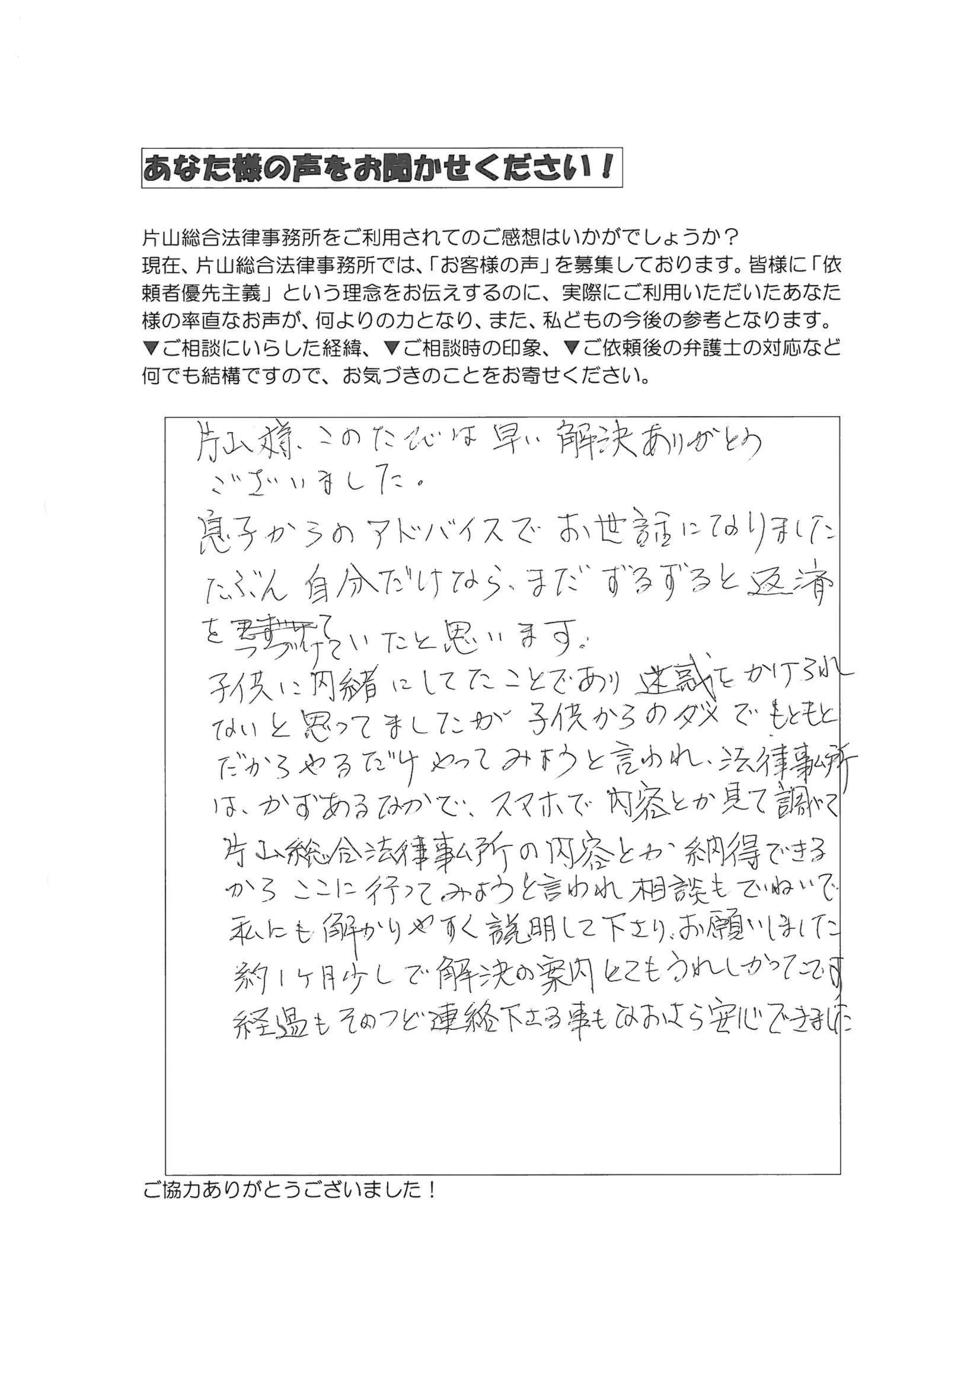 あなた様の声をお聞かせください！
片山総合法律事務所をご利用されてのご感想はいかがでしょうか？
現在、片山総合法律事務所では、「お客様の声」を募集しております。皆様に「依
頼者優先主義」という理念をお伝えするのに、実際にご利用いただいたあなた
様の率直なお声が、何よりの力となり、また、私どもの今後の参考となります。
▼ご相談にいらした経緯、▼ご相談時の印象、▼ご依頼後の弁護士の対応など
何でも結構ですので、お気づきのことをお寄せください。
片山様、このたびは早い解決ありがとう
ございました。
息子からのアドバイスでお世話になりました
たぶん自分だけなら、まだずるずると返済
をつづけていたと思います。
子供に内緒にしてたことであり迷惑をかけられ
ないと思ってましたが子供からのダメでもともと
だからやるだけやってみようと言われ、法律事務所
は、かずあるなかで、スマホで内容とか見て調べて
片山総合法律事務所の内容とか納得できる
からここに行ってみようと言われ相談もていねいで
私にも解かりやすく説明して下さり、お願いしました
約1ヶ月少しで解決の案内とてもうれしかったです
経過もそのつど連絡下さる事もなおさら安心できました
ご協力ありがとうございました！